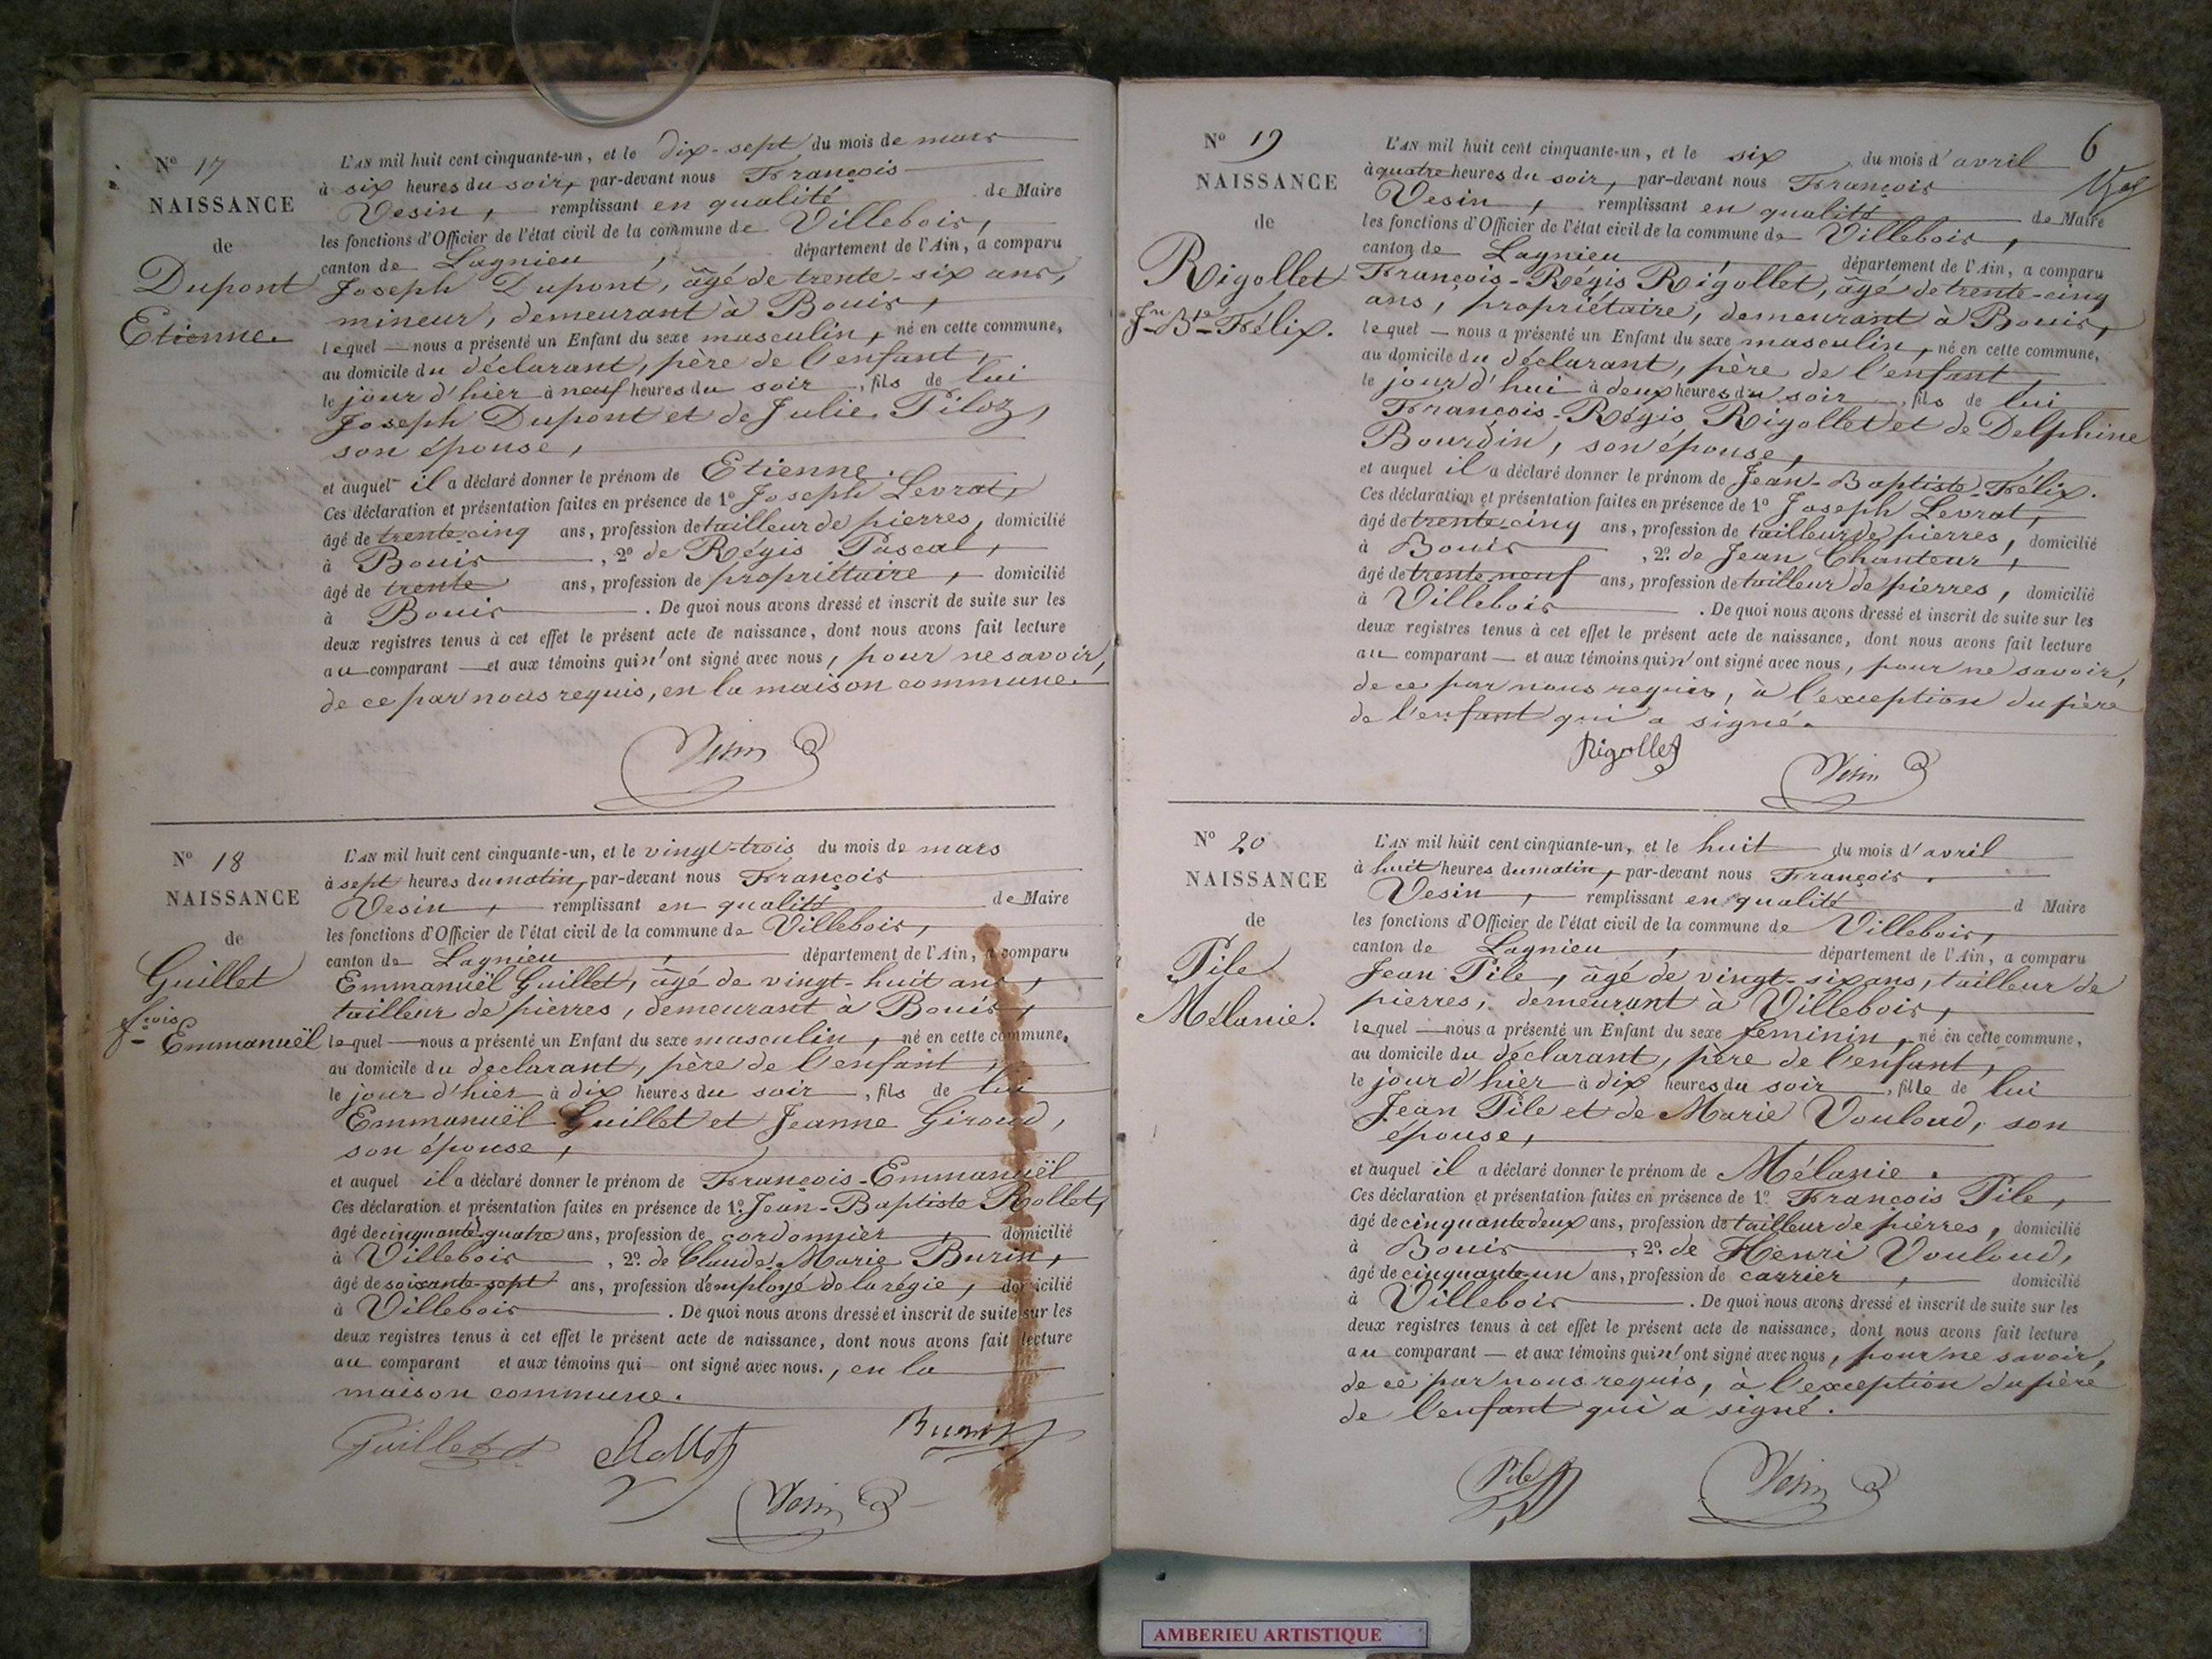 N° 17
NAISSANCE
de
Dupont
Etienne.
L'AN mil huit cent cinquante-un, et le dix-sept du mois de mars
à six heures du soir, par-devant nous François
Vesin, remplissant en qualité de Maire
les fonctions d'Officier de l'état civil de la commune de Villebois,
canton de Lagnieu, département de l'Ain, a comparu
Joseph Dupont, âgé de trente-six ans,
mineur, demeurant à Bouis,
lequel nous a présenté un Enfant du sexe masculin, né en cette commune,
au domicile du déclarant, père de l'enfant,
le jour d'hier à neuf heures du soir, fils de lui
Joseph Dupont et de Julie Piloz,
son épouse,
et auquel il a déclaré donner le prénom de Etienne.
Ces déclaration et présentation faites en présence de 1° Joseph Levrat,
âgé de trente-cinq ans, profession de tailleur de pierres, domicilié
à Bouis, 2° de Régis Pascal,
âgé de trente ans, profession de propriétaire, domicilié
à Bouis. De quoi nous avons dressé et inscrit de suite sur les
deux registres tenus à cet effet le présent acte de naissance, dont nous avons fait lecture
au comparant et aux témoins qui n'ont signé avec nous, pour ne savoir,
de ce par nous requis, en la maison commune.
Vesin
N° 18
NAISSANCE
de
Guillet
fcois
Emmanuël
L'AN mil huit cent cinquante-un, et le vingt-trois du mois de mars
à sept heures du matin, par-devant nous François
Vesin, remplissant en qualité de Maire
les fonctions d'Officier de l'état civil de la commune de Villebois,
canton de Lagnieu, département de l'Ain, a comparu
Emmanuël Guillet, âgé de vingt-huit ans,
tailleur de pierres, demeurant à Bouis,
lequel nous a présenté un Enfant du sexe masculin, né en cette commune,
au domicile du déclarant, père de l'enfant,
le jour d'hier à dix heures du soir, fils de lui
Emmanuël Guillet et Jeanne Giroud,
son épouse,
et auquel il a déclaré donner le prénom de François-Emmanuël
Ces déclaration et présentation faites en présence de 1° Jean-Baptiste Rollet,
âgé de cinquante-quatre ans, profession de cordonnier, domicilié
à Villebois, 2° de Claude-Marie Burin,
âgé de soixante-sept ans, profession d'employé de la régie, domicilié
à Villebois. De quoi nous avons dressé et inscrit de suite sur les
deux registres tenus à cet effet le présent acte de naissance, dont nous avons fait lecture
au comparant et aux témoins qui ont signé avec nous., en la
maison commune.
Guillet Rollet Burin
Vesin
6
N° 19
NAISSANCE
de
Rigollet
Jn Bte Félix.
L'AN mil huit cent cinquante-un, et le six du mois d'avril
à quatre heures du soir, par-devant nous François
Vesin, remplissant en qualité de Maire
les fonctions d'Officier de l'état civil de la commune de Villebois,
canton de Lagnieu, département de l'Ain, a comparu
François-Régis Rigollet, âgé de trente-cinq
ans, propriétaire, demeurant à Bouis,
lequel nous a présenté un Enfant du sexe masculin, né en cette commune,
au domicile du déclarant, père de l'enfant,
le jour d'hui à deux heures du soir, fils de lui
François-Régis Rigollet et de Delphine
Bourdin, son épouse,
et auquel il a déclaré donner le prénom de Jean-Baptiste-Félix.
Ces déclaration et présentation faites en présence de 1° Joseph Levrat,
âgé de trente-cinq ans, profession de tailleur de pierres, domicilié
à Bouis, 2° de Jean Chanteur,
âgé de trente neuf ans, profession de tailleur de pierres, domicilié
à Villebois. De quoi nous avons dressé et inscrit de suite sur les
deux registres tenus à cet effet le présent acte de naissance, dont nous avons fait lecture
au comparant et aux témoins qui n'ont signé avec nous, pour ne savoir,
de ce par nous requis, à l'exception du père
de l'enfant qui a signé.
Rigollet
Vesin
N° 20
NAISSANCE
de
Pile
Mélanie.
L'AN mil huit cent cinquante-un, et le huit du mois d'avril
à huit heures du matin, par-devant nous François
Vesin, remplissant en qualité d Maire
les fonctions d'Officier de l'état civil de la commune de Villebois,
canton de Lagnieu, département de l'Ain, a comparu
Jean Pile, âgé de vingt-six ans, tailleur de
pierres, demeurant à Villebois,
lequel nous a présenté un Enfant du sexe féminin, né en cette commune,
au domicile du déclarant, père de l'enfant,
le jour d'hier à dix heures du soir, fille de lui
Jean Pile et de Marie Vouloud, son
épouse,
et auquel il a déclaré donner le prénom de Mélanie.
Ces déclaration et présentation faites en présence de 1° François Pile,
âgé de cinquante deux ans, profession de tailleur de pierres, domicilié
à Bouis, 2° de Henri Vouloud,
âgé de cinquante-un ans, profession de carrier, domicilié
à Villebois. De quoi nous avons dressé et inscrit de suite sur les
deux registres tenus à cet effet le présent acte de naissance, dont nous avons fait lecture
au comparant et aux témoins qui n'ont signé avec nous, pour ne savoir,
de ce par nous requis, à l'exception du père
de l'enfant qui a signé.
Pile Vesin
AMBERIEU ARTISTIQUE